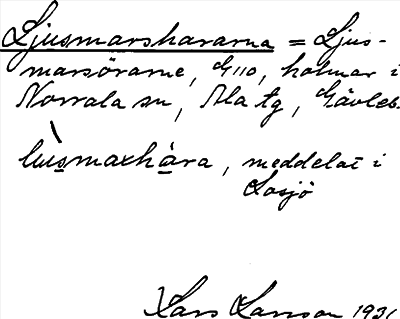 Ljusmarshararna = Ljus-
marsörarne, G110, holmar i
Norrala sn, Ala tg, Gävleb.
lìusmaxhàra, meddelat i
Losjö
Lars Larsson 1931